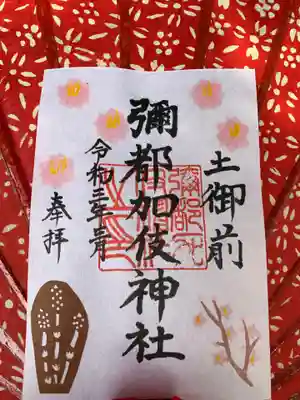 土御前
彌都加伎神社
令和三年三月
奉拝